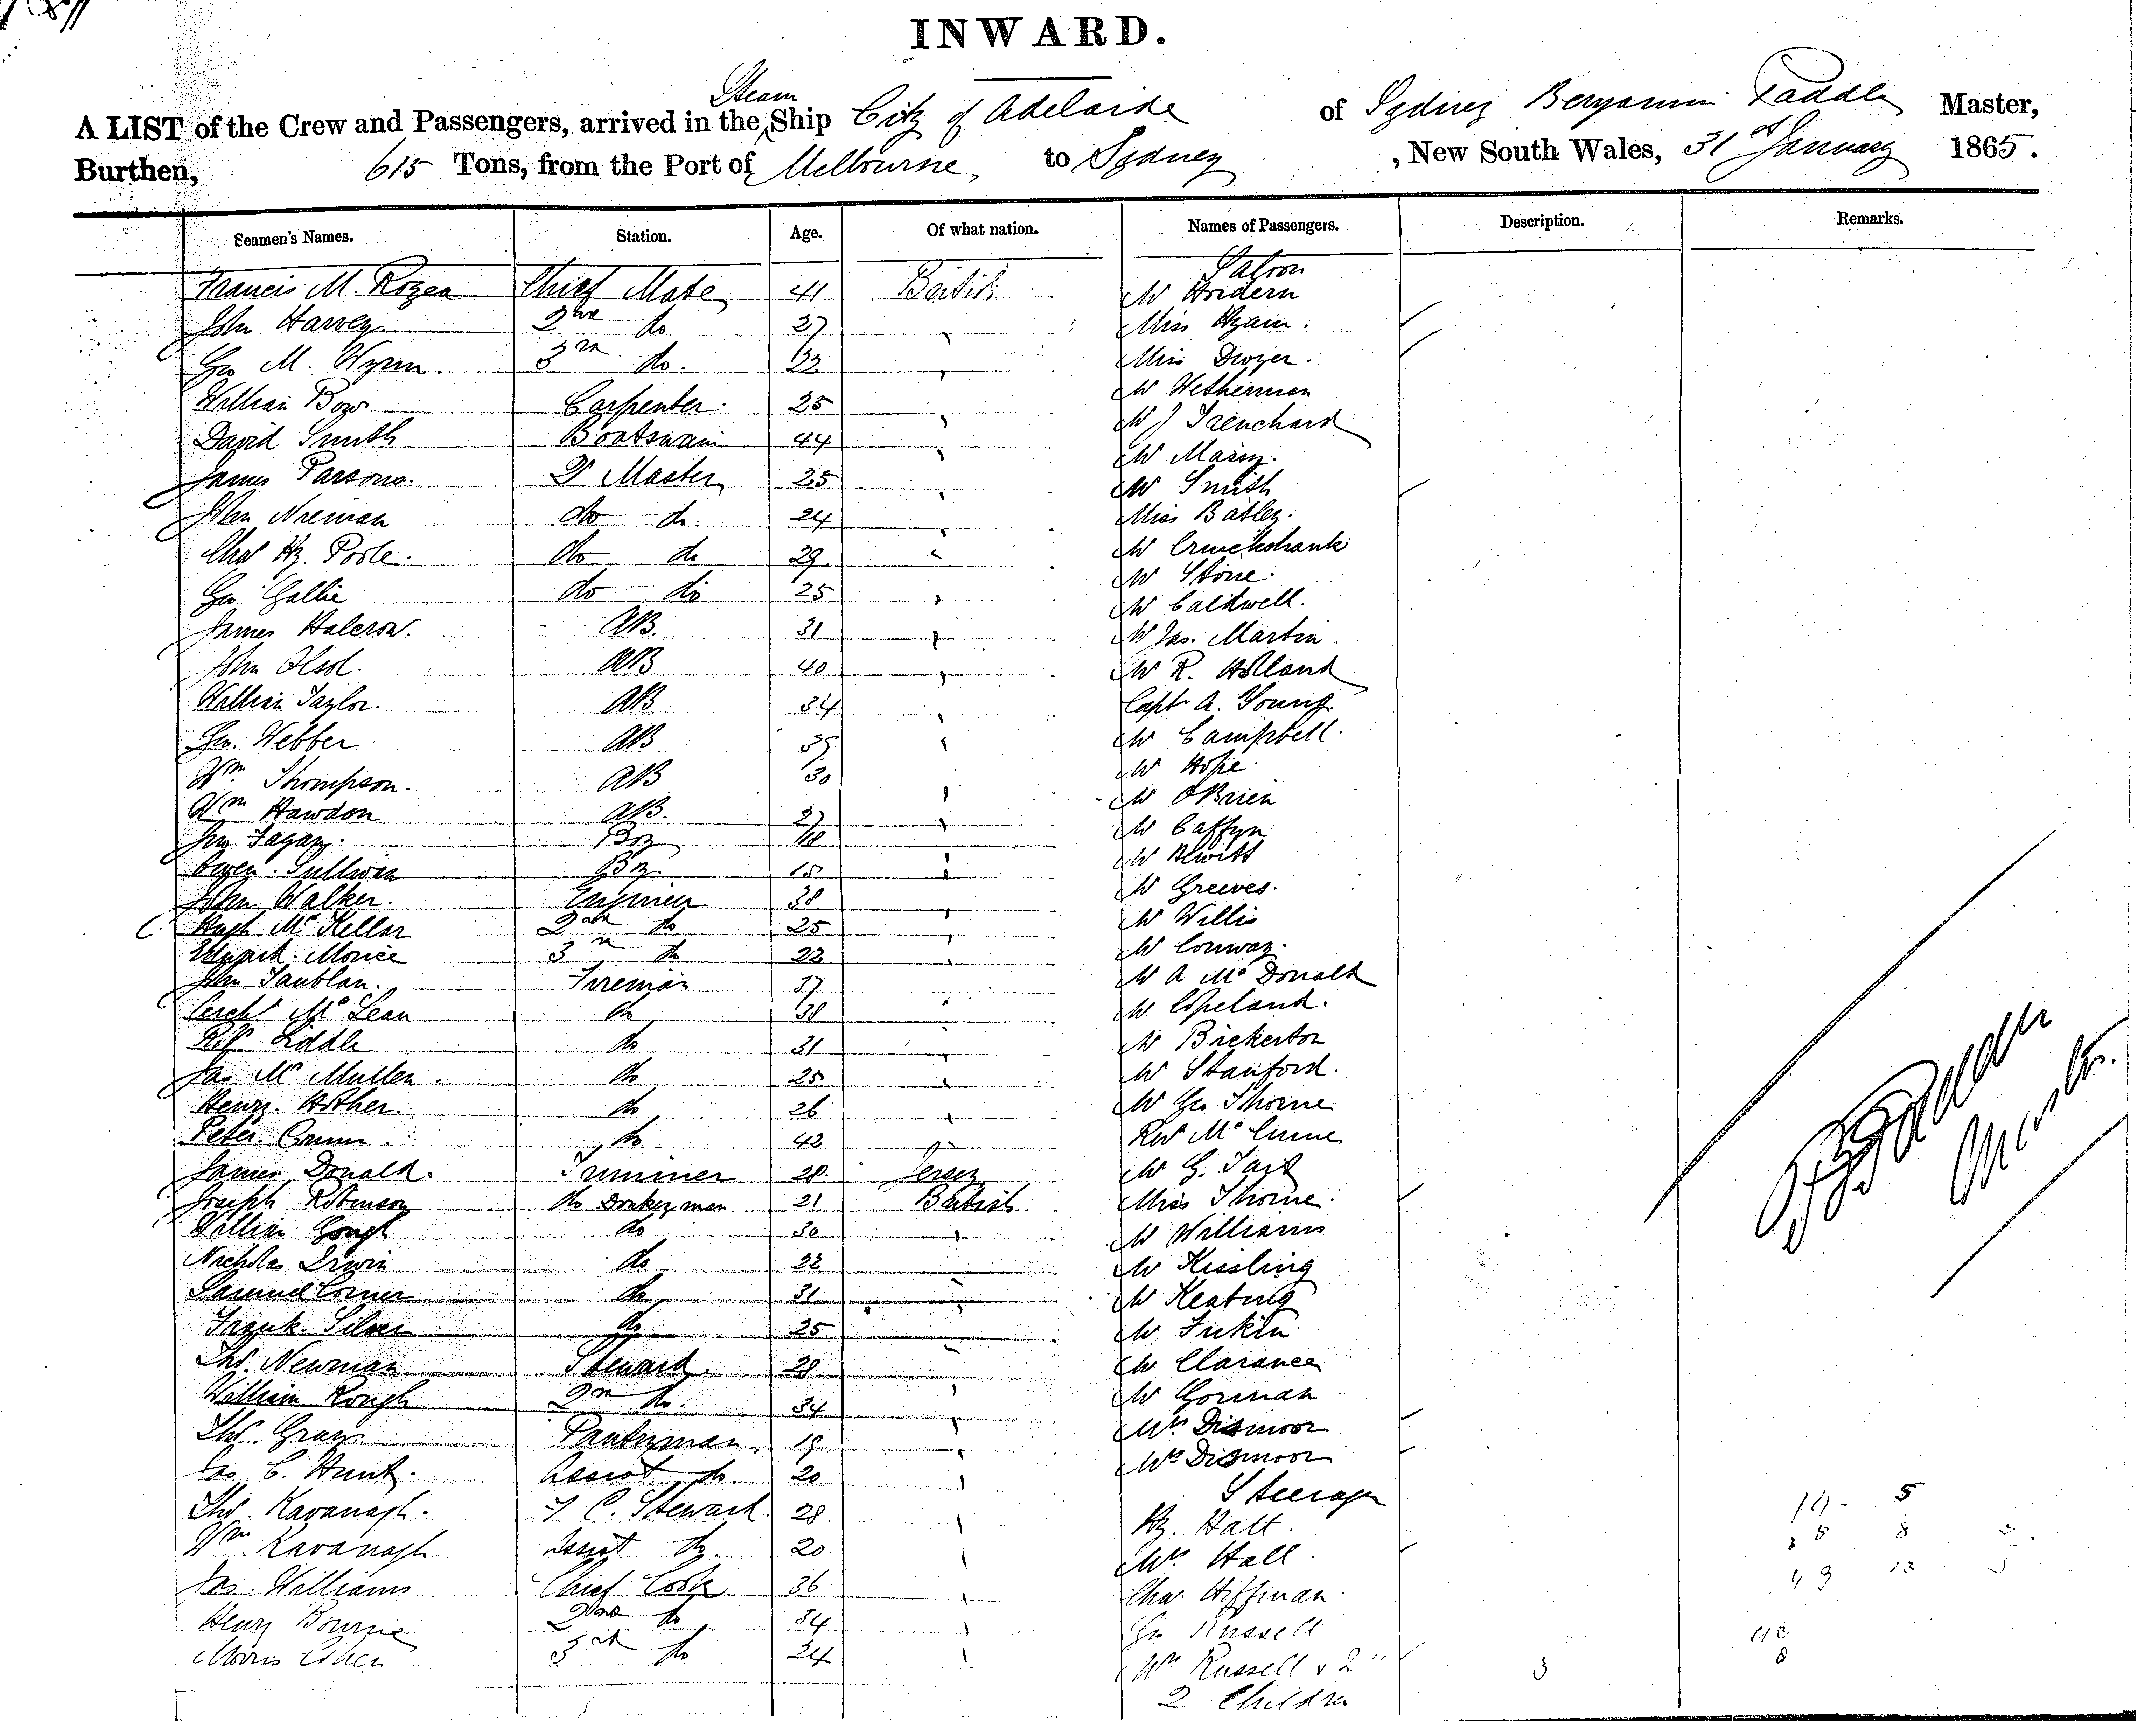 INWARD.
Steam
A LIST of the Crew and Passengers, arrived in the Ship City of Adelaide of Sydney Benjamin Master,
Burthen, 615 Tons, from the Port of Melbourne, to Sydney, New South Wales, 31st January 1865.
Seamen's Names. Station. Age. Of what nation. Names of Passengers. Description. Remarks.
Saloon
Francis M. Chief Mate 41 British Mr Hordern
John Harvey 2nd do 27 " Miss Hyam.
Geo M. Wynn. 3rd do. " Miss Dwyer.
William Carpenter. 25 " Mr Wetherman
David Smith Boatswain 44 " Mr J Trenchard
James Parsons. Qr Master 25 " Mr
Mr Smith
John do do. 24 " Miss Batley.
Chas Hy. Poole. do do 29 " Mr Cruickshank
Mr Stone.
Geo Gallie do do 25 " Mr Caldwell.
James Halcrow. AB. 31 " Mr Jas. Martin
John AB 40 " Mr R. Holland
William Taylor. AB 34 " Capt A. Young
Geo. Webber AB " Mr Campbell.
Wm Thompson. AB 30 " Mr Hope
Wm Hawdon AB. 27 " Mr O'Brien
Boy " Mr Caffyn
Owen Sullivan Boy 15 " Mr Hewitt
John Walker. Engineer 38 " Mr Greeves.
Hugh McKellar 2nd do 25 " Mr Willis
Morice 3rd do 22 " Mr Conway.
John Fireman 37 " Mr A McDonald
McLean do 38 " Mr Copeland.
Liddle do 31 " Mr Bickerton
Jas McMullen. do 25 " Mr Stanford.
Henry do 26 " Mr Geo Thorne
Peter Gunn. do 42 " Rev Mc
James Donald. Trimmer 28 Jersey Mr G.
Joseph Robinson do Donkeyman 21 British Miss Thorne.
William Gough do 30 " Mr Williams
Nicholas Irwin do 22 " Mr Kissling
Samuel Corner do 31 " Mr Keating
Frank Silver do 25 " Mr
Thos. Newman Steward 28 " Mr Clarance
William 2nd do. 34 " Mr Gorman
Mrs Dismoor
Thos. Gray Pantryman. 19 " Mrs Dismoor
Jas C. Hunt. Assist do. 20 "
Steerage
Thos. Kavanagh. F C. Steward 28 " Hy. Hall
Wm Kavanagh Assist do. 20 " Mrs Hall
Jas. Williams Chief Cook 36 " Chas Hoffman.
Henry Bourne 2nd do 34 " Geo Russell
Morris 3rd do 24 " Mrs Russell & 2
2 Children